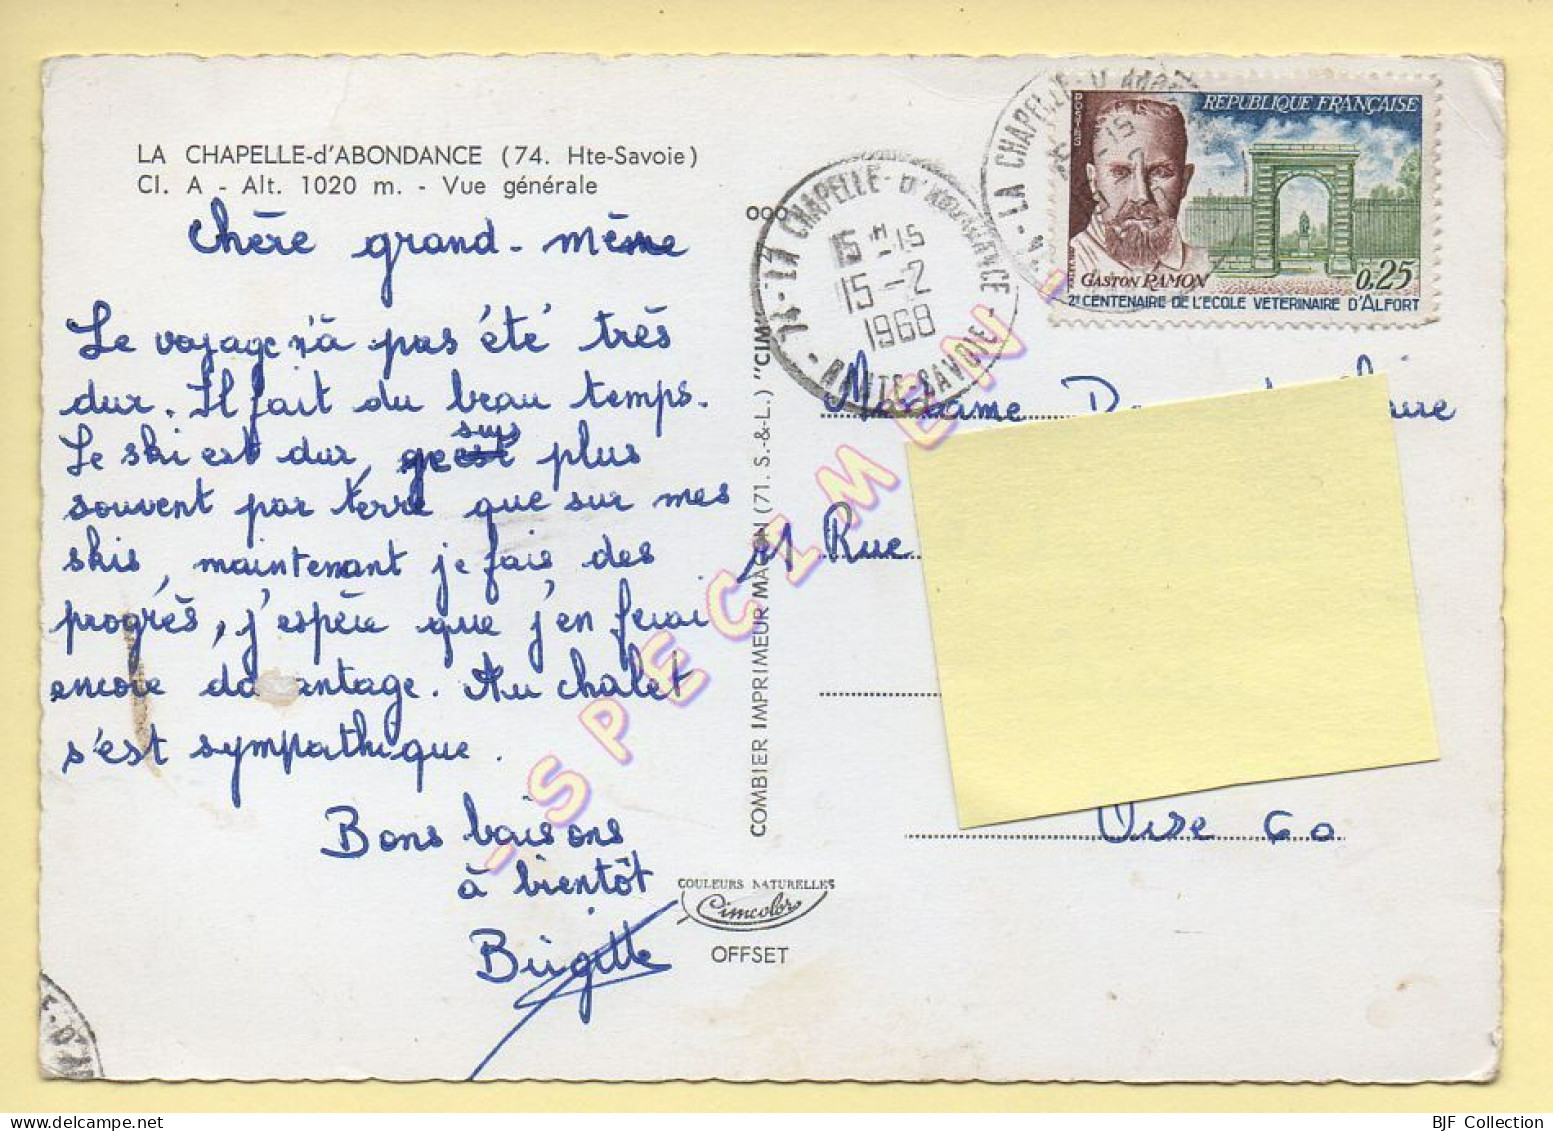 LA CHAPELLE-d'ABONDANCE (74. Hte-Savoie)
Cl. A - Alt. 1020 m. - Vue générale
Chère grand-mème
Le voyage n'à pas été très
dur. Il fait du beau temps.
Le ski est dur, ge suis plus
souvent par terre que sur mes
skis, maintenant je fais des
progrès, j'espère que j'en ferai
encore da antage. Au chalet
s'est sympathique.
Bons baisons
à bientôt
Brigitte
COULEURS NATURELLES
Cimcolor
OFFSET
COMBIER IMPRIMEUR MACON (71. S.-&-L.) "CIM"
74 - LA CHAPELLE-D'ABONDANCE
15 H 15
15-2
1968
HAUTE-SAVOIE
LA CHAPELLE-D'ABON
POSTES
REPUBLIQUE FRANÇAISE
GASTON RAMON
0,25
2e CENTENAIRE DE L'ECOLE VETERINAIRE D'ALFORT
Madame
Rue
Oise 60
E-D'A
- SPECIMEN -
BJF Collection